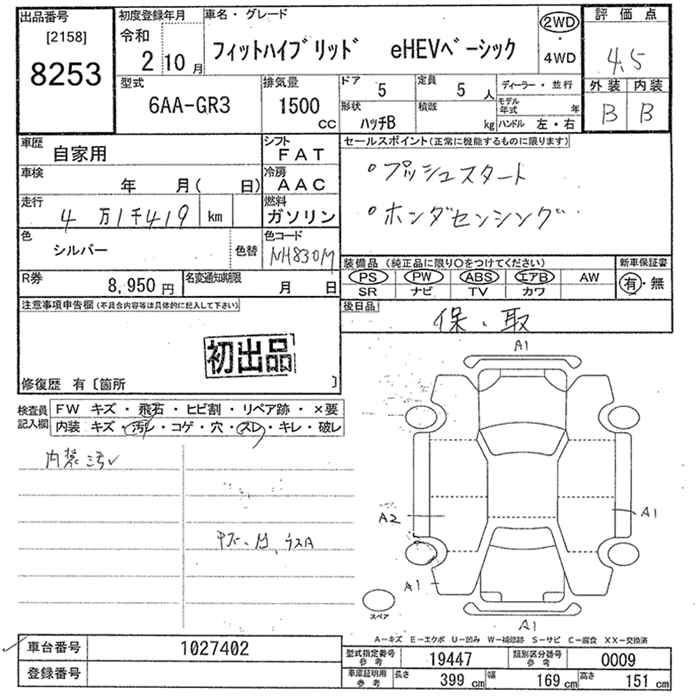 出品番号
[2158]
8253
初度登録年月
令和
2 10 月
車名・グレード
フィットハイブリッド eHEVベーシック
2WD
4WD
評価点
4.5
外装 内装
B B
型式
6AA-GR3
排気量
1500
CC
ドア
5
定員
5 人
形状
ハッチB
積載
kg
ディーラー・並行
モデル年式 年
ハンドル 左・右
車歴
自家用
シフト
FAT
車検
年 月( 日)
冷房
AAC
走行
4万1千419 km
燃料
ガソリン
色
シルバー
色替
色コード
NH830M
R券
8,950円
名変通知期限
月 日
セールスポイント(正常に機能するものに限ります)
・プッシュスタート
・ホンダセンシング
装備品(純正品に限り○をつけてください)
PS PW ABS エアB AW
SR ナビ TV カワ
新車保証書
有・無
後日品
保、取
注意事項申告欄(不具合内容等は具体的に記入して下さい)
初出品
修復歴 有〔箇所 〕
検査員記入欄
FW キズ・飛石・ヒビ割・リペア跡・×要
内装 キズ・汚レ・コゲ・穴・スレ・キレ・破レ
内装汚レ
A1
A2
A1
A1
A1
スペア
A-キズ E-エクボ U-凹み W-補修跡 S-サビ C-腐食 XX-交換済
車台番号
1027402
登録番号
型式指定番号
参考
19447
類別区分番号
参考
0009
車庫証明用
参考
長さ 399 cm
幅 169 cm
高さ 151 cm